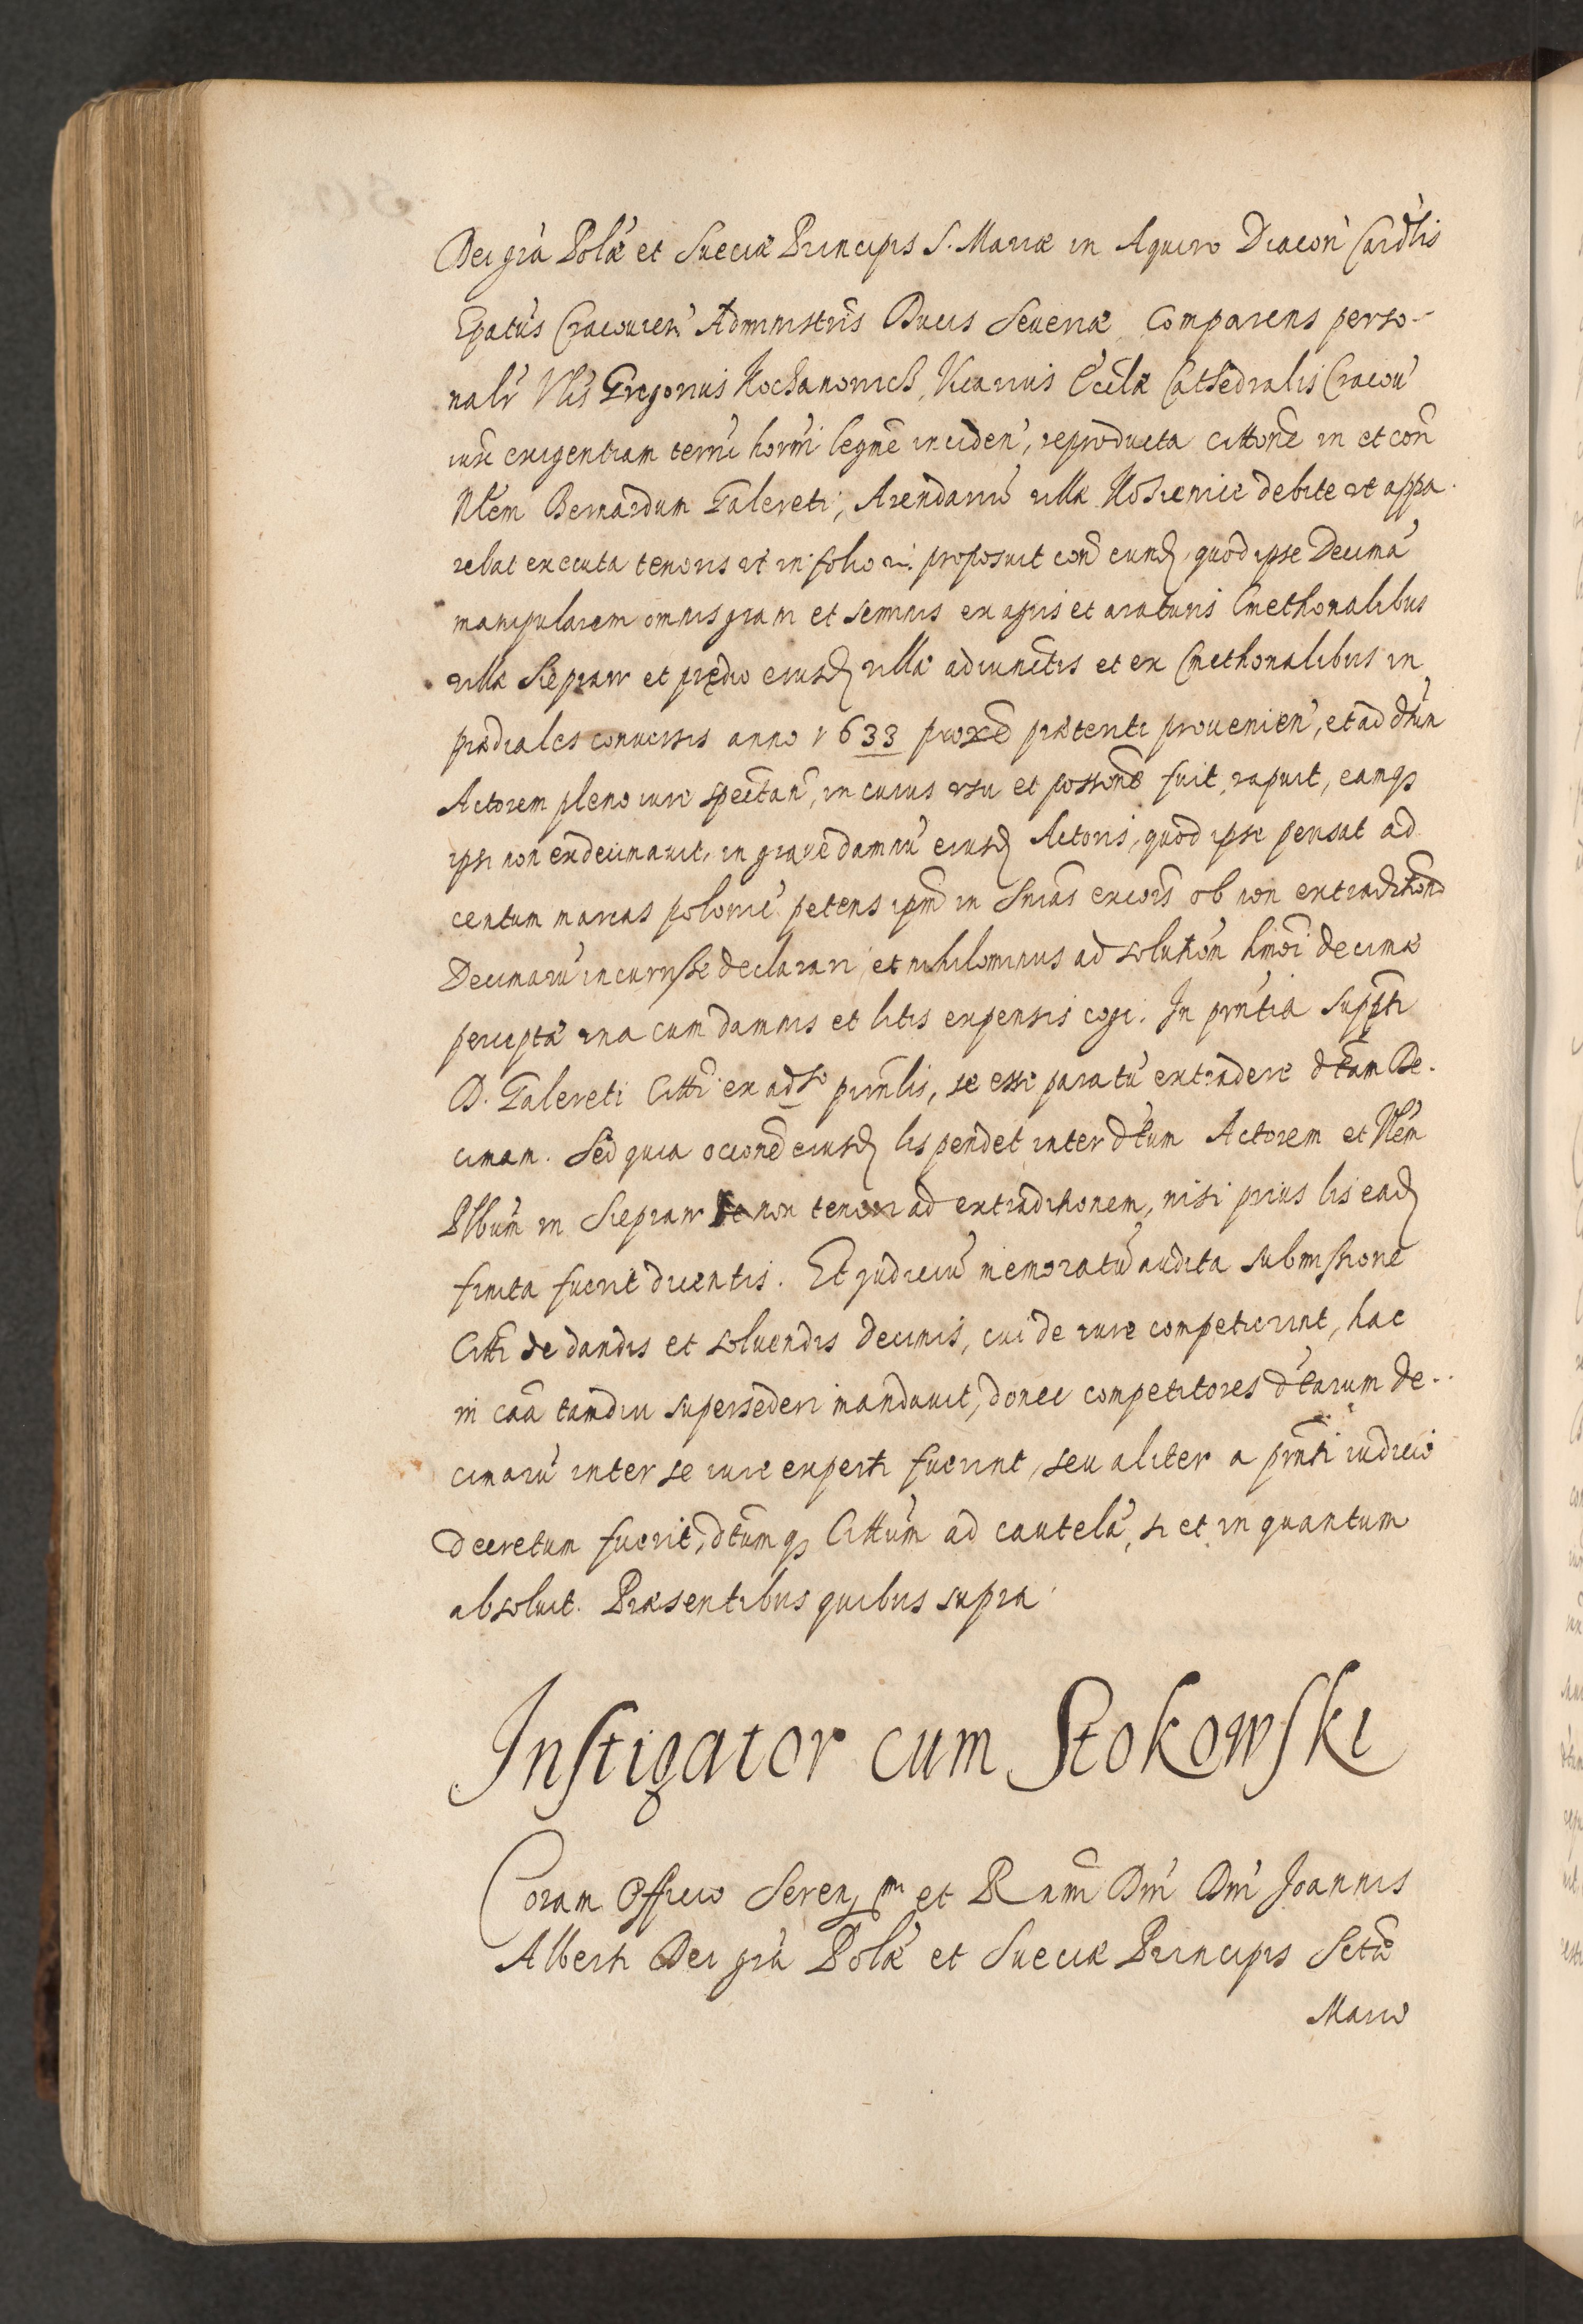 Dei grã Polæ et Sueciæ Principis S. Mariæ in Aquiro Diacon Cardlis
Epatus Cracovien Administris Ducis Severiæ, Comparens perso-
nalr Vlis Gregorius Kochanowich, Vicarius Ecclæ Cathedralis Cracov
iuxe exigentiam termi horni legme inciden, reproducta cittone in et con
Nlem Bernardum Galereti, Arendariũ villæ Kosienice debite ut appa-
rebat executa tenoris ut in folio ri. proposuit con eund, quod ipse Decimã
manipularem omnis grani et seminis ex agris et araturis Cmethonalibus
villæ Siepraw et prędio eiusd villæ adiunctis et ex Cmethonalibus in
prædiales conversis anno 1633 proxe præteriti provenien, et ad dtun
Actorem pleno iure spectan, in cuius usu et possone fuit, rapuit, eamq
ipsi non exdecimavit, in grave damnũ eiusd Actoris, quod ipse pensat ad
centum marcas polonic petens ipm in snias excois ob non extraditon
Decimarũ incurrisse declarari, et nihilominus ad soluton hmoi decimæ
perceptæ una cum damnis et litis expensis cogi. In pñtia suppti
D. Galereti Citti ex adso pirnlis, se esse paratũ extradere dtam De-
cimam. Sed quia ocione eiusd lis pendet inter dtum Actorem et Nlem
Plbum in Siepraw se non teneri ad extraditionem, nisi prius lis ead
finita fuerit dicentis. Et iudiciũ memoratũ audita submissione
Citti de dandis et solvendis decimis, cui de iure competierint, hac
in caã tamdiu supersederi mandavit, donec competitores dtarum de-
cimarũ inter se iure experti fuerint, seu aliter a pñti iudicio
decretum fuerit, dtumq Cittum ad cautelã, si et in quantum
absolvit. Præsentibus quibus supra.
Instigator cum Stokowski
Coram Officio Sereniss mi et R nmi Dni Dni Joannis
Alberti Dei grã Polæ et Sueciæ Principis Sctæ
Mariæ